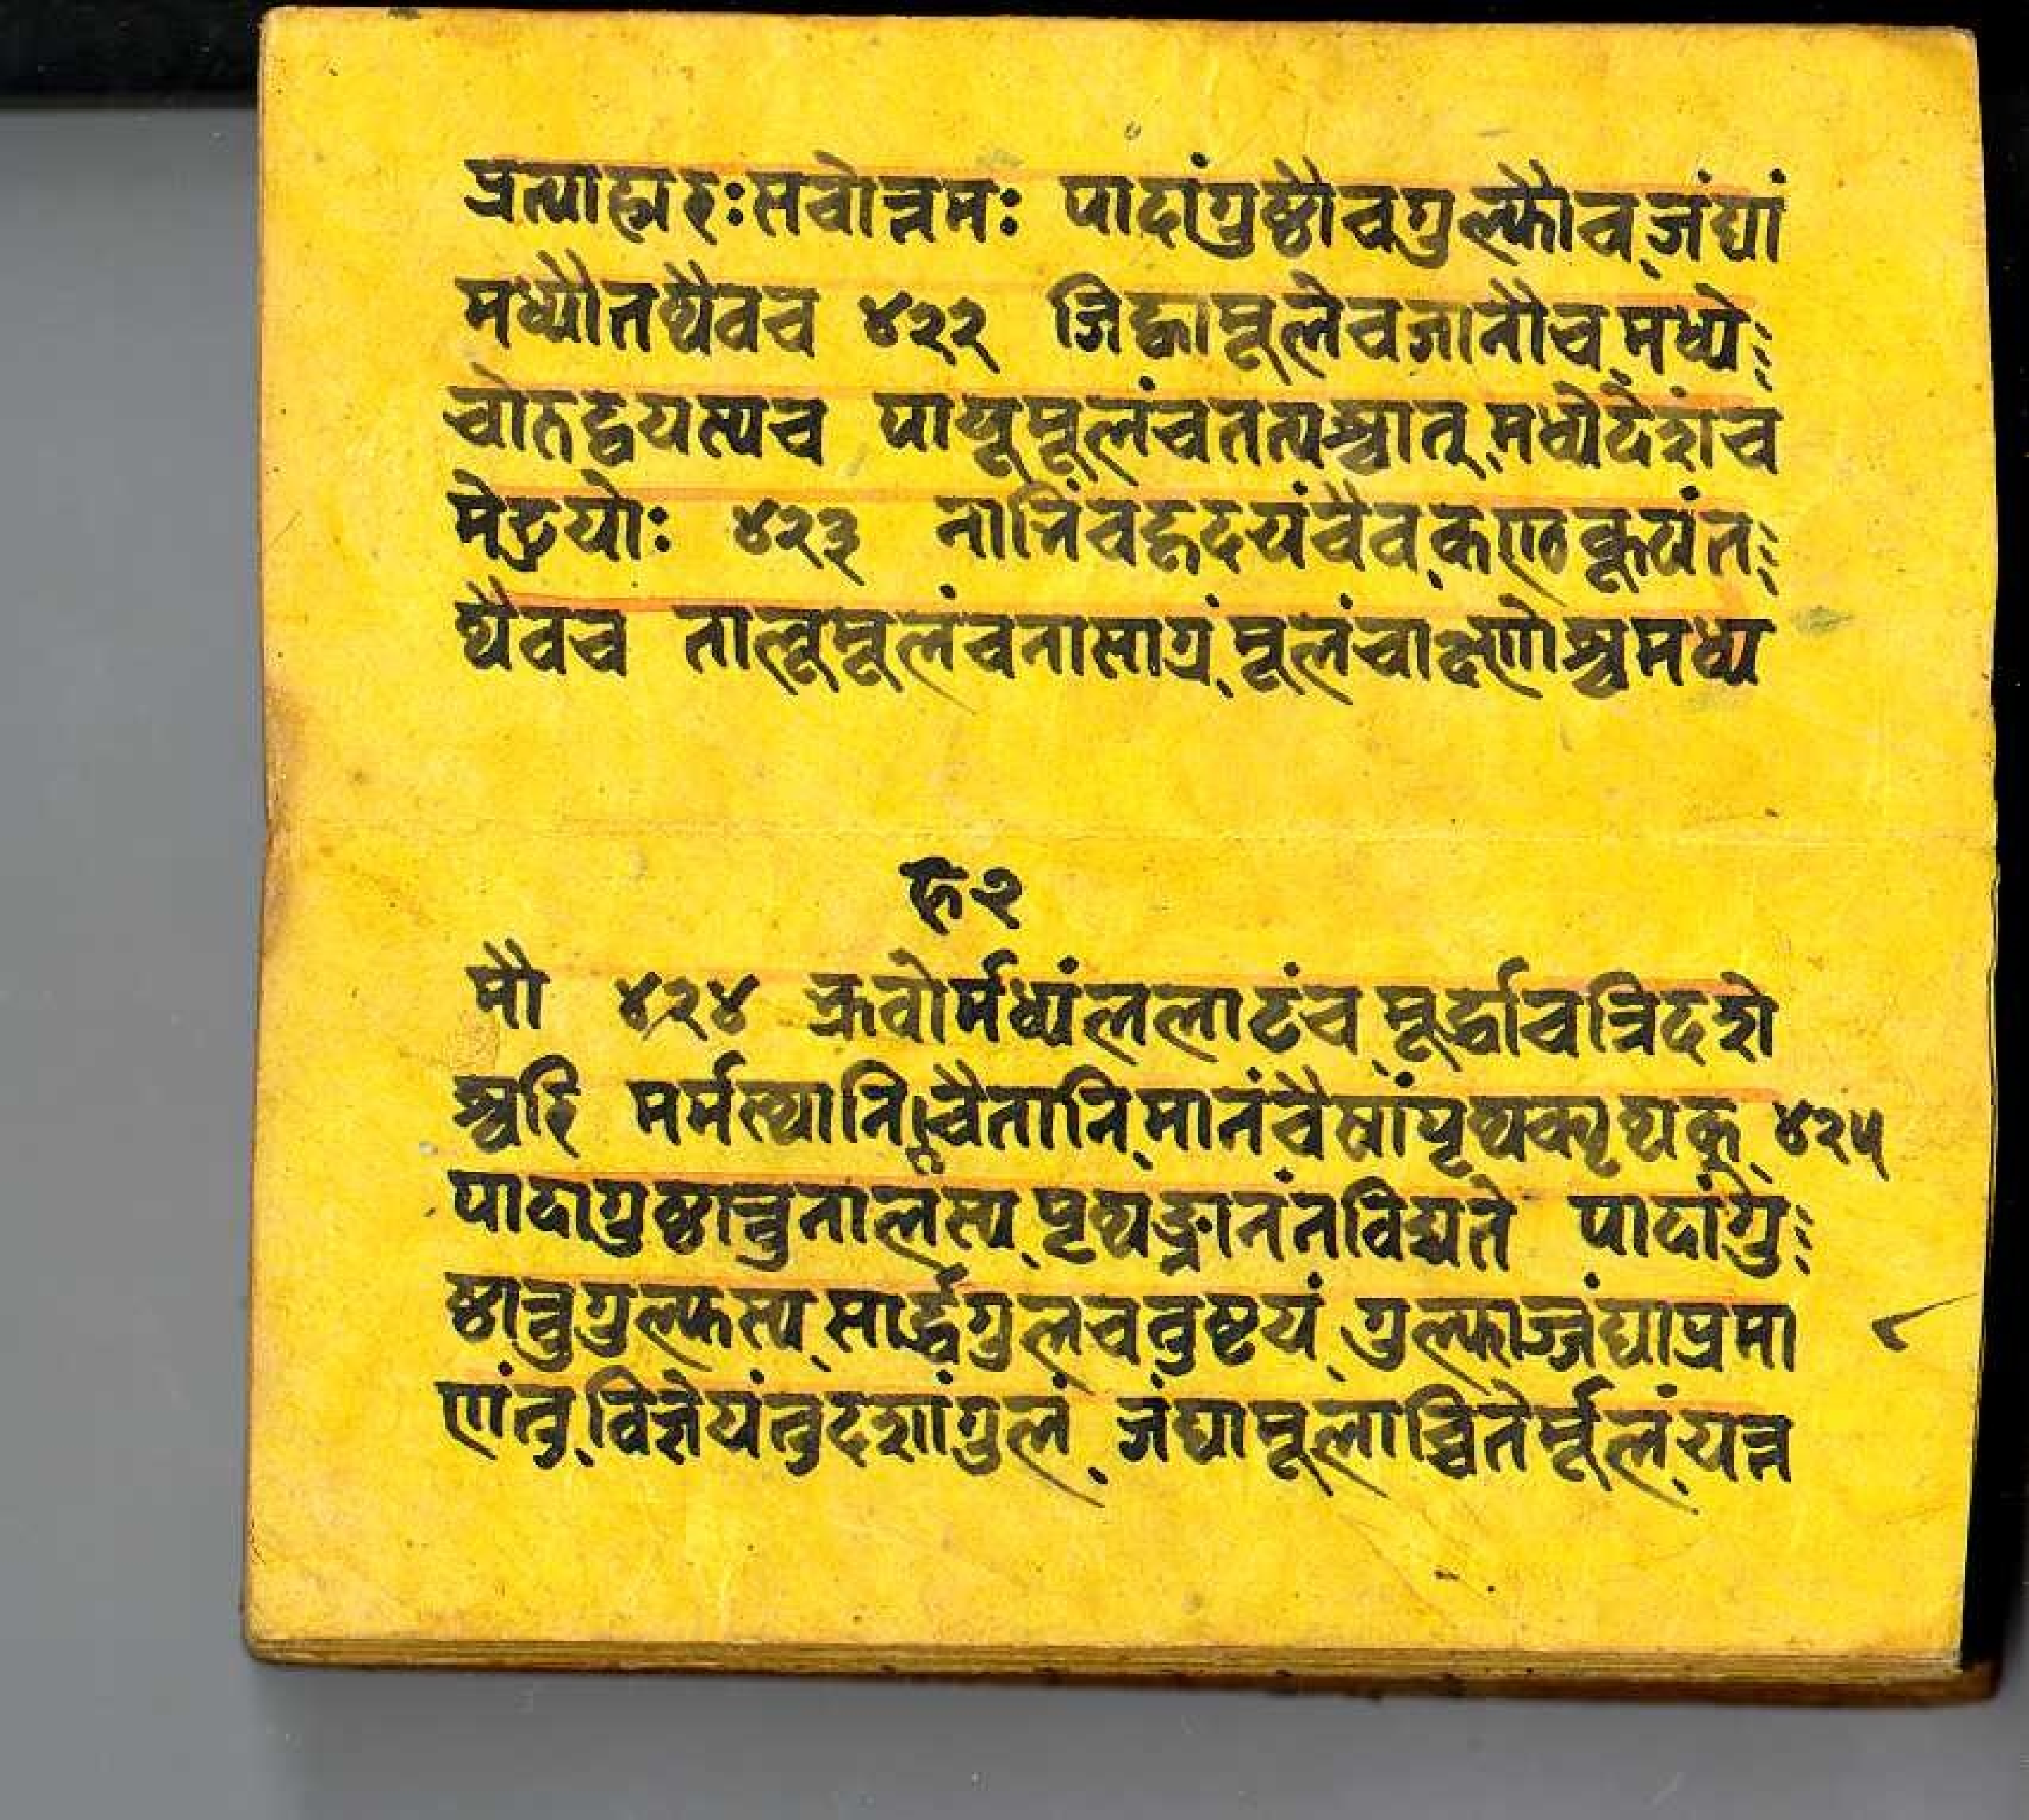 प्रत्याह्यरः सर्वोत्तमः पादांगुष्ठौचगुल्फौच जंघां
मध्यौतथैवच ४२२ जिह्वामूलेचजानौच मध्ये
चोरुद्वयस्यच पायूमूलंचतत्पश्चात् मध्येदेशंच
मेढ्रयोः ४२३ नाभिंचहृदयंचैव कण्ठकूपंत
थैवच तालूमूलंचनासाग्रं मूलंचाक्ष्णोश्चमध्य
८२
मौ ४२४ भ्रुवोर्मध्यंललाटंच मूर्द्धाचत्रिदशे
श्वरि मर्मस्थानि चैतानि मानंचैषांपृथक्पृथक् ४२५
पादागुष्ठात्तुनालस्य पृथङ्मानंनविद्यते पादांगु
ष्ठात्तुगुल्फस्य सार्द्धगुलचतुष्टयं गुल्फाज्जंघाप्रमा
णंतु विज्ञेयंतुदशांगुलं जंघामूलाच्चितेर्मूलं यत्त